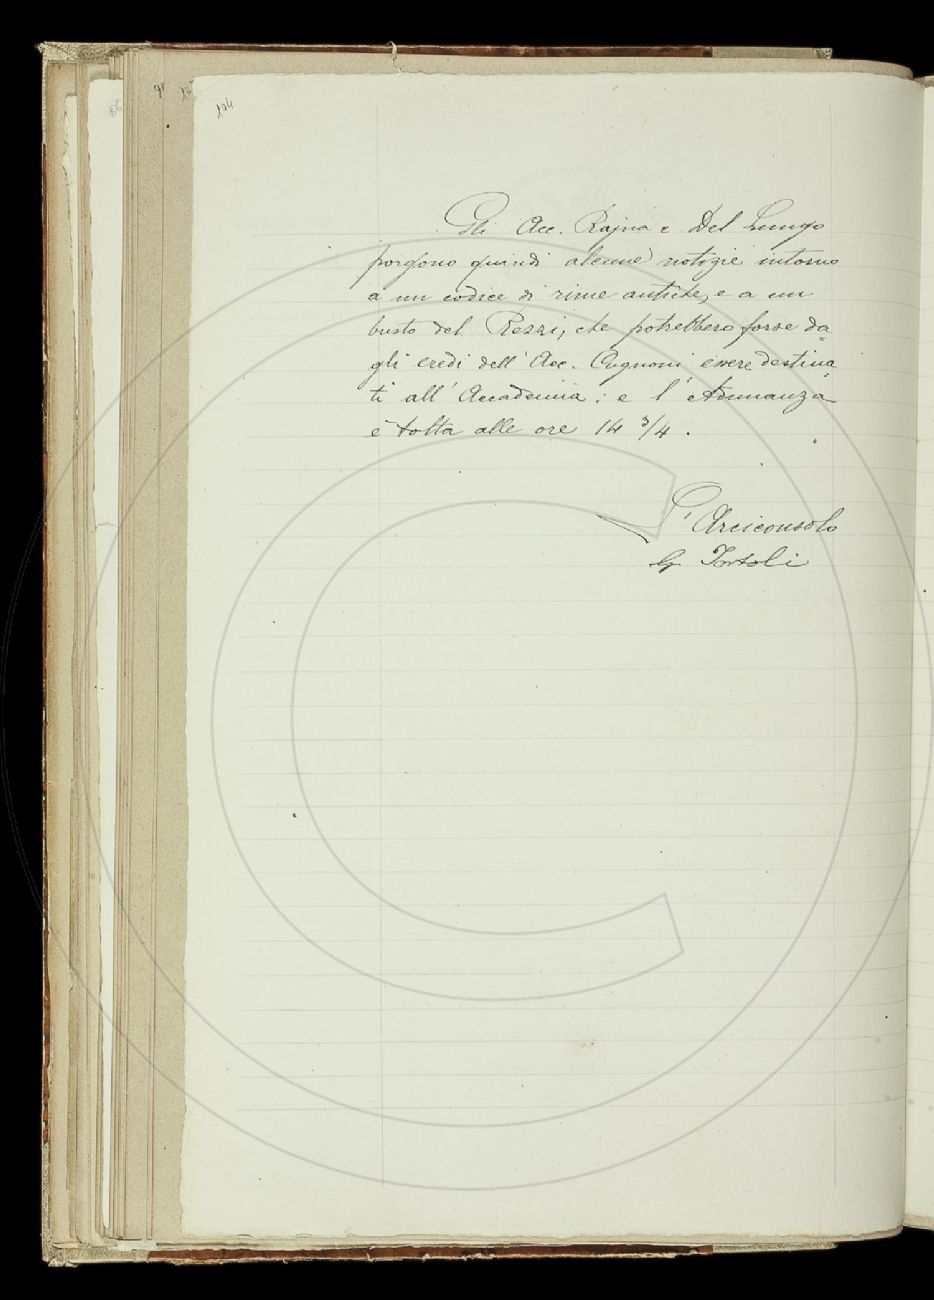 124
Gli Acc. Rajna e Del Lungo
porgono quindi alcune notizie intorno
a un codice di rime antiche, e a un
busto del Rezzi, che potrebbero forse da=
gli eredi dell' Acc. Cugnoni essere destina=
ti all' Accademia: e l' Adunanza
è tolta alle ore 14 3/4.
L' Arciconsolo
G Tortoli